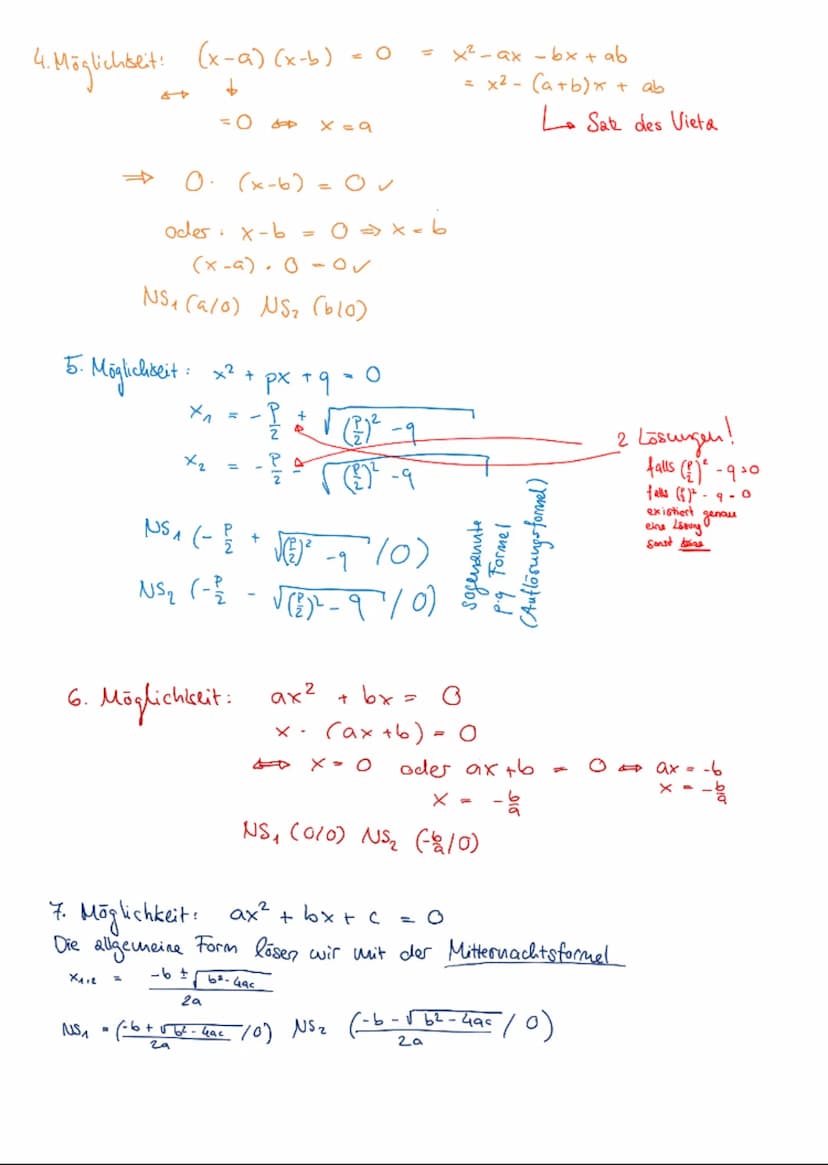 4. Möglichkeit: (x-a) (x-b) = 0 = x² - ax - bx + ab
⇔ ↓ = x² - (a+b)x + ab
= 0 ⇔ x = a ↳ Satz des Vieta
⇒ 0 · (x-b) = 0 ✓
oder · x-b = 0 ⇒ x = b
(x-a) · 0 = 0 ✓
NS₁ (a/0) NS₂ (b/0)
5. Möglichkeit: x² + px + q = 0
x₁ = - p/2 + √((p/2)² - q)
x₂ = - p/2 - √((p/2)² - q)
2 Lösungen!
falls (p/2)² - q > 0
falls (p/2)² - q = 0
existiert genau
eine Lösung
sonst keine
NS₁ (- p/2 + √((p/2)² - q) / 0)
NS₂ (- p/2 - √((p/2)² - q) / 0)
sogenannte
p.q Formel
(Auflösungsformel)
6. Möglichkeit: ax² + bx = 0
x · (ax + b) = 0
⇔ x = 0 oder ax + b = 0 ⇔ ax = -b
x = - b/a x = - b/a
NS₁ (0/0) NS₂ (- b/a / 0)
7. Möglichkeit: ax² + bx + c = 0
Die allgemeine Form lösen wir mit der Mitternachtsformel
x₁,₂ = (-b ± √(b² - 4ac)) / 2a
NS₁ = ((-b + √(b² - 4ac)) / 2a / 0) NS₂ ((-b - √(b² - 4ac)) / 2a / 0)